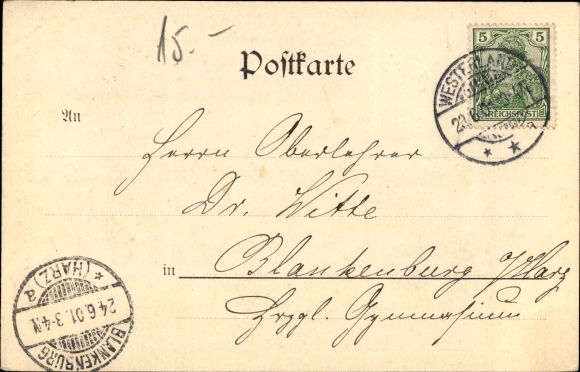 15.-
Postkarte
5 5
REICHSPOST
WESTERLAND
An
Herrn Oberlehrer
Dr. Witte
in Blankenburg /Harz
Hrzgl. Gymnasium
* (HARZ) a
24.6.01.3-4N.
BLANKENBURG